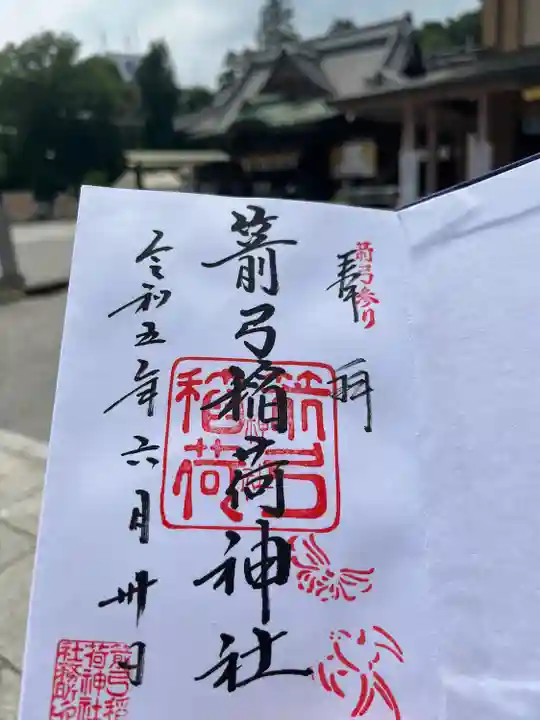 箭弓参り
奉拝
箭弓稲荷神社
箭弓稲荷
令和五年六月卅日
箭弓稲荷神社社務所